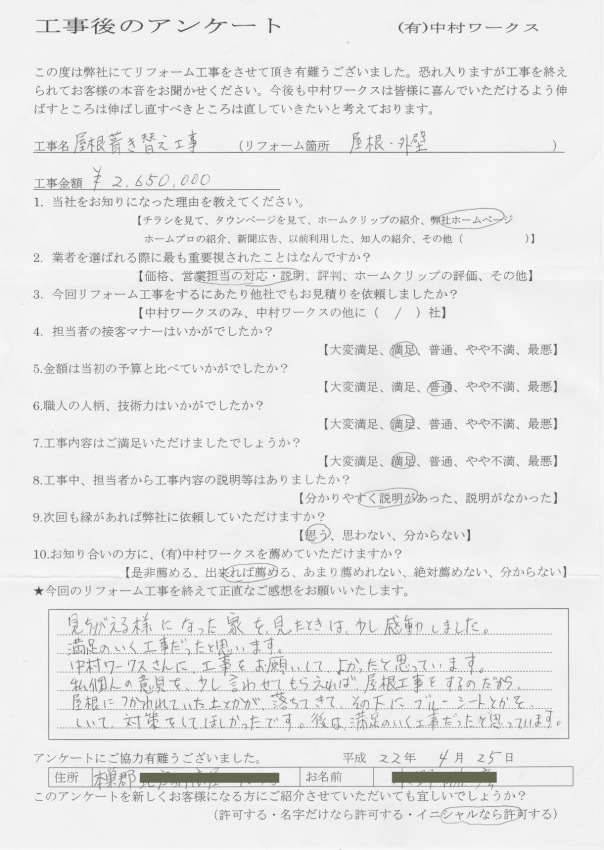 工事後のアンケート (有)中村ワークス
この度は弊社にてリフォーム工事をさせて頂き有難うございました。恐れ入りますが工事を終え
られてお客様の本音をお聞かせください。今後も中村ワークスは皆様に喜んでいただけるよう伸
ばすところは伸ばし直すべきところは直していきたいと考えております。
工事名 屋根葺き替え工事 (リフォーム箇所 屋根・外壁 )
工事金額 ¥2,650,000
1. 当社をお知りになった理由を教えてください。
【チラシを見て、タウンページを見て、ホームクリップの紹介、弊社ホームページ
ホームプロの紹介、新聞広告、以前利用した、知人の紹介、その他 ( )】
2. 業者を選ばれる際に最も重要視されたことはなんですか?
【価格、営業担当の対応・説明、評判、ホームクリップの評価、その他】
3. 今回リフォーム工事をするにあたり他社でもお見積りを依頼しましたか?
【中村ワークスのみ、中村ワークスの他に ( / ) 社】
4. 担当者の接客マナーはいかがでしたか?
【大変満足、満足、普通、やや不満、最悪】
5.金額は当初の予算と比べていかがでしたか?
【大変満足、満足、普通、やや不満、最悪】
6.職人の人柄、技術力はいかがでしたか?
【大変満足、満足、普通、やや不満、最悪】
7.工事内容はご満足いただけましたでしょうか?
【大変満足、満足、普通、やや不満、最悪】
8.工事中、担当者から工事内容の説明等はありましたか?
【分かりやすく説明があった、説明がなかった】
9.次回も縁があれば弊社に依頼していただけますか?
【思う、思わない、分からない】
10.お知り合いの方に、(有)中村ワークスを薦めていただけますか?
【是非薦める、出来れば薦める、あまり薦めれない、絶対薦めない、分からない】
★今回のリフォーム工事を終えて正直なご感想をお願いいたします。
見ちがえる様になった家を、見たときは、少し感動しました。
満足のいく工事だったと思います。
中村ワークスさんに、工事をお願いして、よかったと思っています。
私個人の意見を、少し言わせてもらえれば、屋根工事をするのだから、
屋根につかわれていた土とかが、落ちてきて、その下に、ブルーシートとかを、
しいて、対策をしてほしかったです。後は、満足のいく工事だったと思っています。
アンケートにご協力有難うございました。 平成 22年 4月 25日
住所 本巣郡 お名前
このアンケートを新しくお客様になる方にご紹介させていただいても宜しいでしょうか?
(許可する・名字だけなら許可する・イニシャルなら許可する)